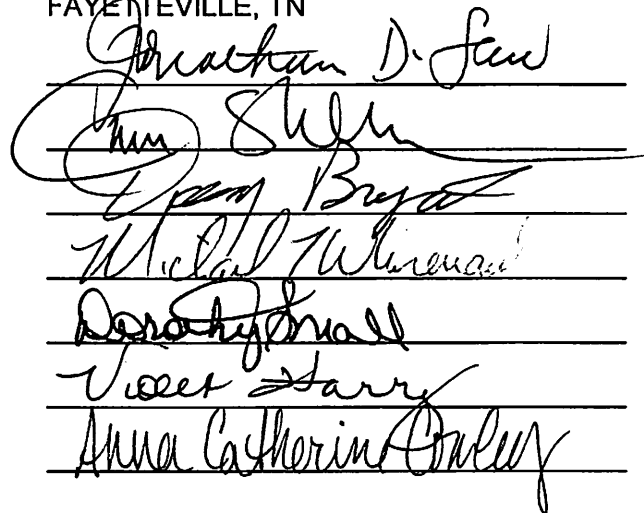 FAYETTEVILLE, TN
Jonathan D. Law
Bryant
Michael Whisenant
Dorothy Small
Violet Harry
Anna Catherine Conley